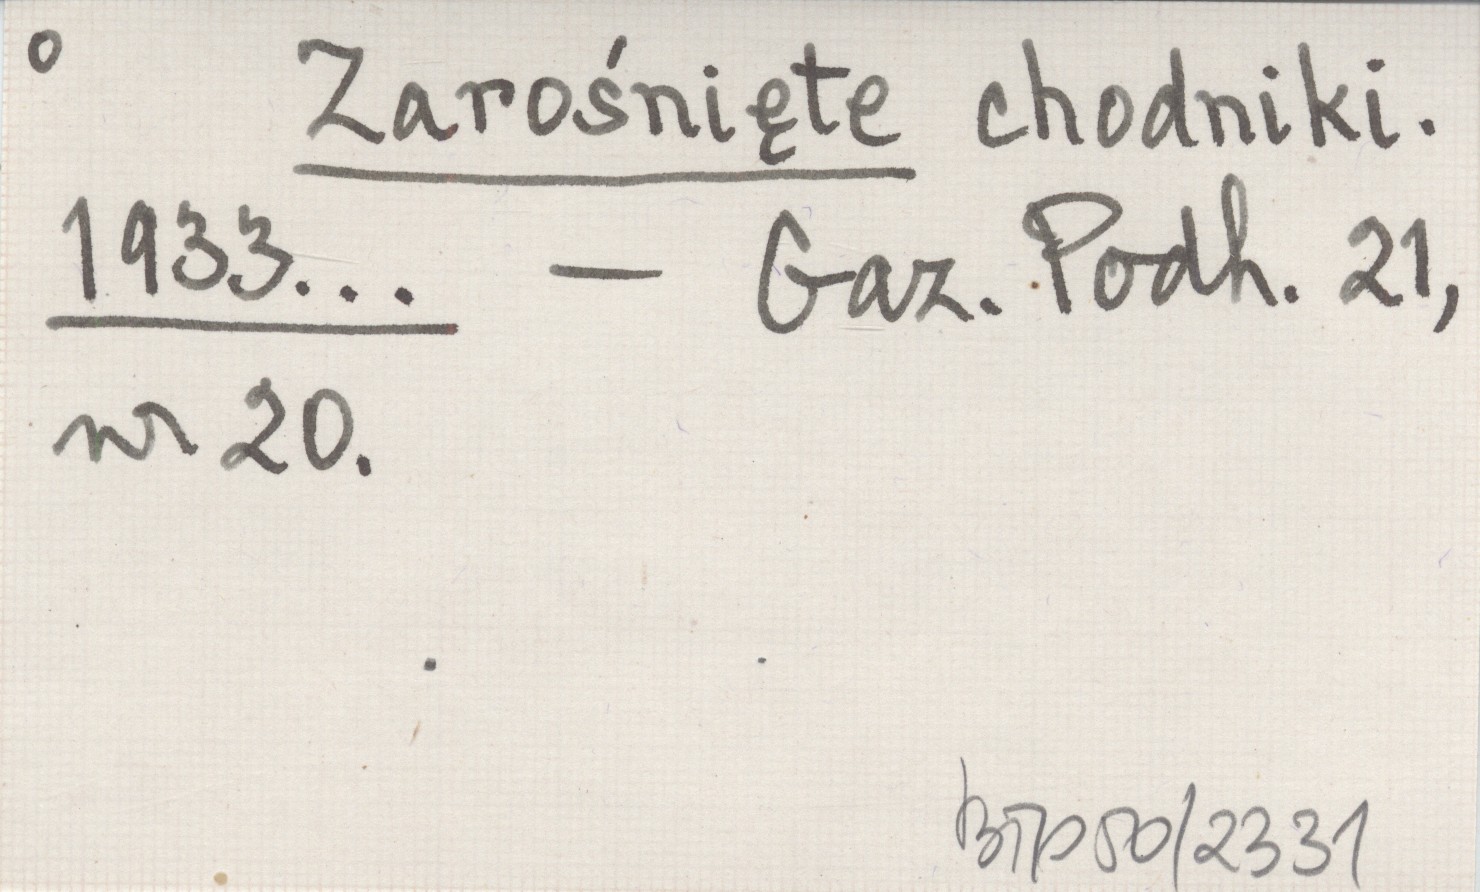 o Zarośnięte chodniki.
1933... — Gaz. Podh. 21,
nr 20.
BTP 50/2331